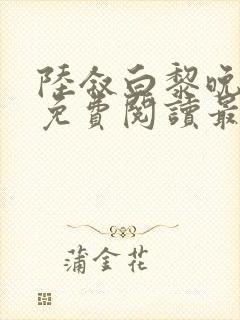 陸敘白黎晚
免費閱讀最
蒲金花